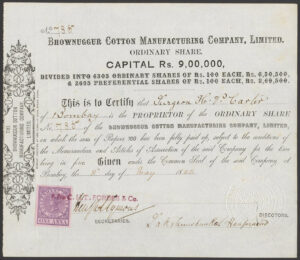 No. 738
BHOWNUGGUR COTTON MANUFACTURING COMPANY, LIMITED.
ORDINARY SHARE.
CAPITAL Rs. 9,00,000,
DIVIDED INTO 6305 ORDINARY SHARES OF Rs. 100 EACH, Rs. 6,30,500,
& 2695 PREFERENTIAL SHARES OF Rs. 100 EACH, Rs. 2,69,500.
This is to Certify that
of Bombay is the PROPRIETOR of the ORDINARY SHARE
No. 738 of the BHOWNUGGUR COTTON MANUFACTURING COMPANY, LIMITED,
on which the sum of Rupees 100 has been fully paid up, subject to the conditions of
the Memorandum and Articles of Association of the said Company for the time
being in force Given under the Common Seal of the said Company at
Bombay, the day of May
FORBES & Co.
SECRETARIES.
DIRECTORS.
ONE ANNA
THE BHOWNUGGUR COTTON MANUFACTURING COMPANY, LIMITED.